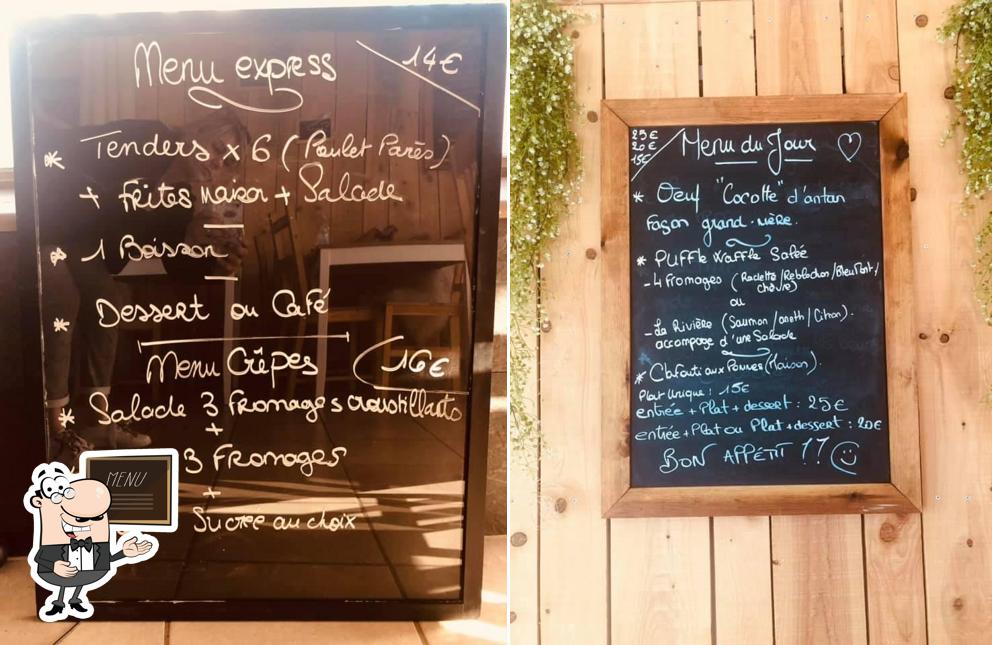 Menu express 14€
* Tenders x 6 (Poulet Panés)
+ frites maison + Salade
* 1 Boisson
* Dessert ou Café
Menu Crêpes 16€
* Salade 3 Fromages croustillants
+
3 Fromages
+
Sucrée au choix
MENU
25€
20€
15€
Menu du Jour
* Oeuf "Cocotte" d'antan
Façon grand-mère.
* PUFFLE Waffle Salée
- 4 Fromages (Raclette/Reblochon/Bleu Mont/
chèvre)
ou
- La Rivière (Saumon/aneth/Citron).
accompagé d'une Salade
* Clafouti aux Pommes (Maison).
Plat Unique : 15€
entrée + Plat + dessert : 25€
entrée + Plat ou Plat + dessert : 20€
BON APPÉTIT !!